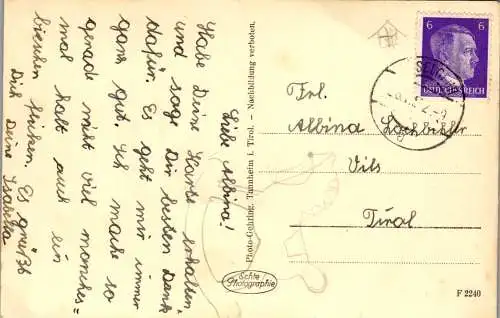 Liebe Albina!
Habe Deine Karte erhalten
und sage Dir besten Dank
dafür. Es geht mir immer
ganz gut. Ich mache so
gerad nicht viel manches=
mal halt auch ein
bisschen
Es grüßt
Dich Deine Isabella
Photo-Gehring, Tannheim i. Tirol. – Nachbildung verboten.
Echte
Photographie
6 6
DEUTSCHES REICH
Frl.
Albina
Vils
Tirol
F 2240